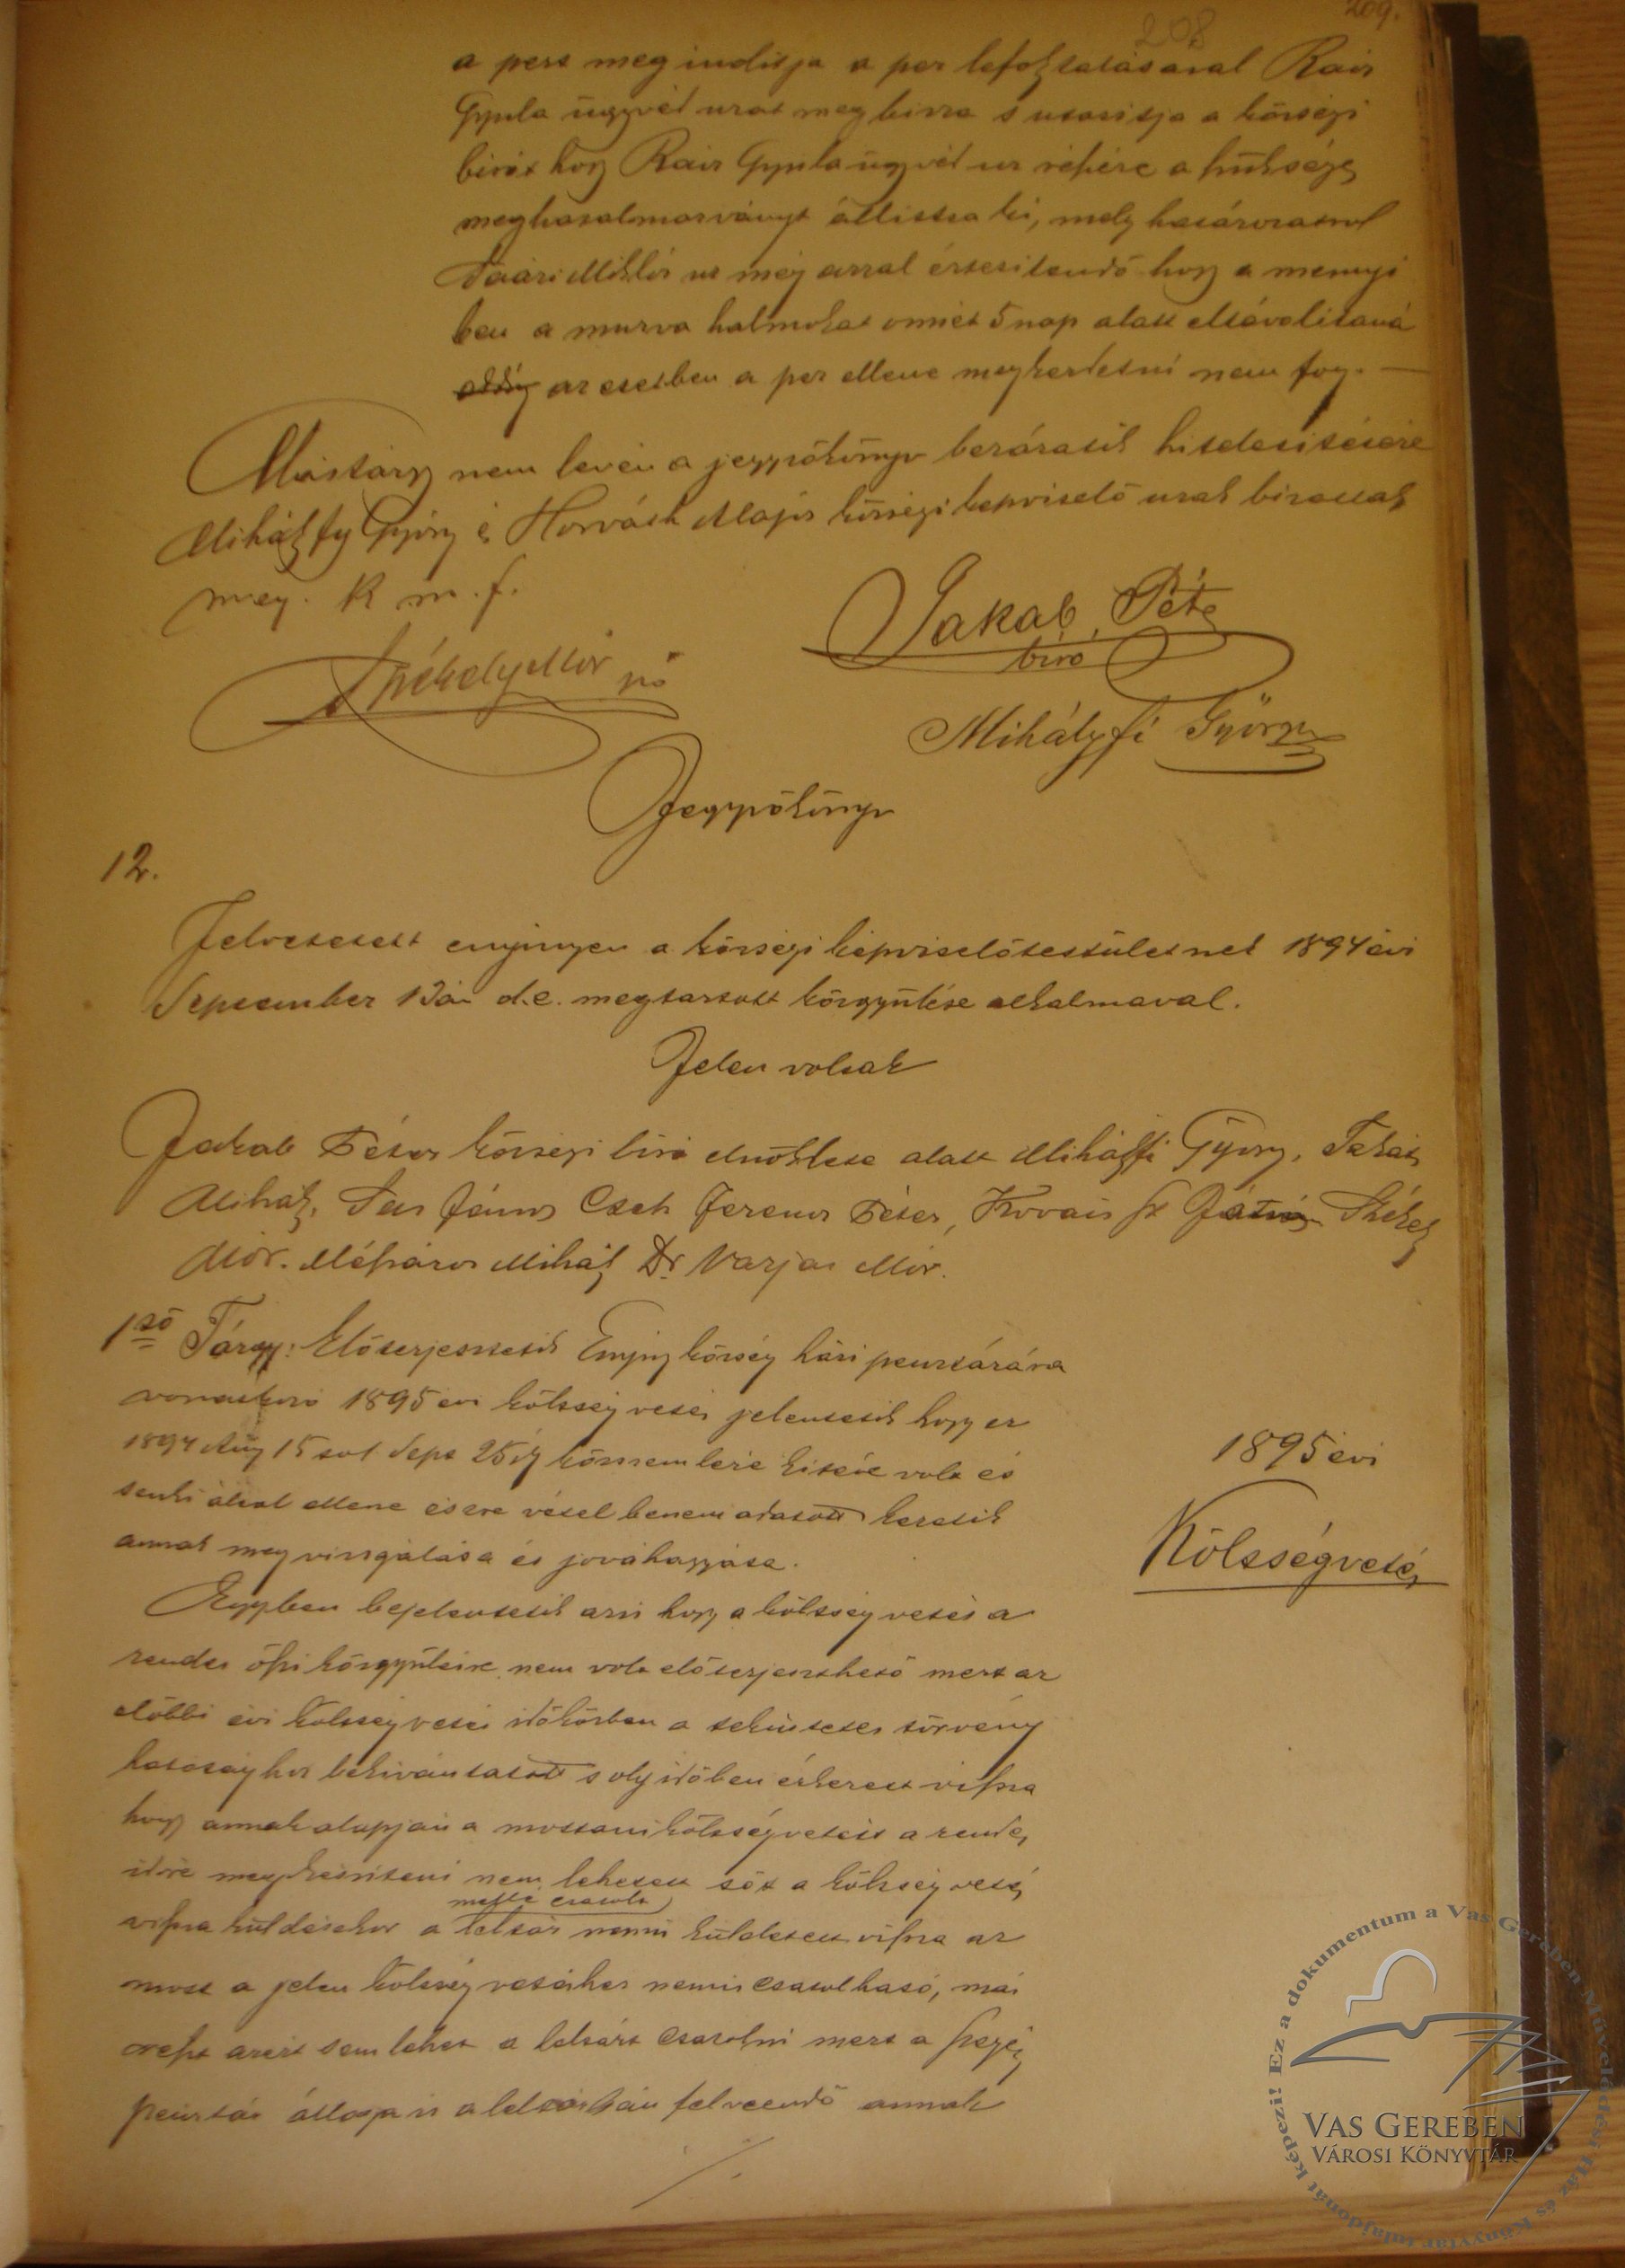 208
209.
a pert meg inditja a per lefolytatásával Rais
Gyula ügyvéd urat meg bizza s utasitja a községi
birót hogy Rais Gyula ügyvéd ur részére a szükséges
meghatalmazványt állittsa ki, mely határozatrol
Miklós ur még azzal értesitendő hogy a mennyi
ben a murva halmokat onnét 5 nap alatt eltávolitaná
az esetben a per ellene megkezdetni nem fog. —
Más tárgy nem lévén a jegyzőkönyv bezáratik hitelesitésére
Mihályfy György és Horváth Alajos községi képviselő urak bizattak
meg. K. m. f.
Jakab Péter
biró
Székely Mór
Mihályfi György
Jegyzőkönyv
12.
Felvétetett enyingen a községi képviselőtestületnek 1894 évi
September 13án d.e. megtartott közgyűlése alkalmával.
Jelen voltak
Jakab Péter községi biró elnöklete alatt Mihályfi György, Takáts
Mihály, Pap János Cseh Ferencz Péter, Kovács Székely
Mór. Mészáros Mihály Dr Varjas Mór.
1ső Tárgy: Előterjesztetik Enying község házi pénztárára
vonatkozó 1895 évi költség vetés jelentetik hogy ez
1894 Aug 15 től Sept 25ig közszemlére kitéve volt és
senki által ellene észre vétel be nem adatott kéretik
annak meg vizsgálása és jóváhagyása.
1895 évi
Költségvetés
Egyben bejelentetik az is hogy a költség vetés a
rendes őszi közgyűlésre nem volt előterjeszthető mert az
előbbi évi költség vetés időközben a tekintetes törvény
hatósághoz bekivántatott s oly időben érkezett vissza
hogy annak alapján a mostani költségvetést a rendes
időre megkésziteni nem lehetett sőt a költség vetés
vissza küldésekor a mellé csatolt leltár nem is küldetett vissza az
most a jelen költség vetéshez nem is csatolható, más
részt azért sem lehet a leltárt csatolni mert a szegény
pénztár állaga is a leltárban felveendő annak
./.
Ez a dokumentum a Vas Gereben Művelődési Ház és Könyvtár tulajdonát képezi!
VAS GEREBEN
VÁROSI KÖNYVTÁR